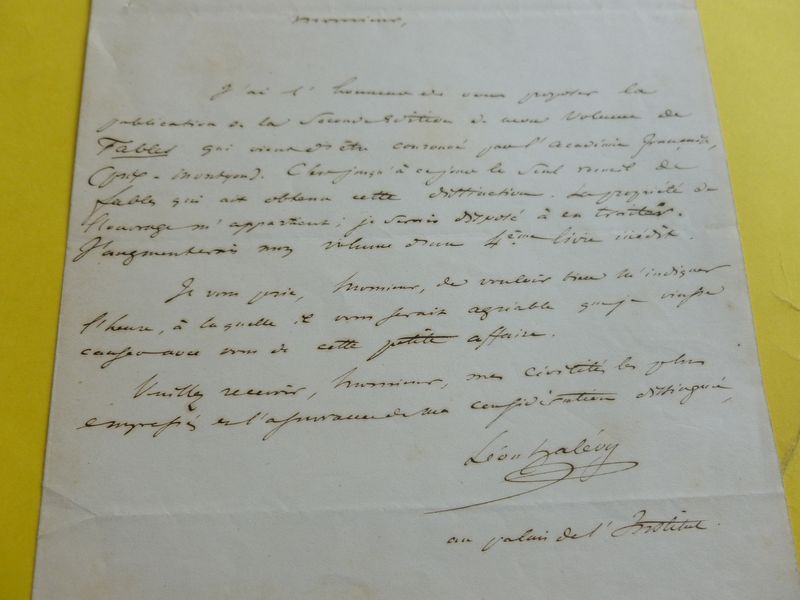 Monsieur,
J'ai l'honneur de vous proposer la
publication de la Seconde édition de mon Volume de
Fables qui vient d'être couronné par l'Académie française,
(prix-montyon). C'est jusqu'à ce jour le seul recueil de
fables qui ait obtenu cette distinction. La propriété de
l'ouvrage m'appartient; je serais disposé à en traiter.
J'augmenterais mon volume d'un 4ème livre inédit.
Je vous prie, Monsieur, de vouloir bien m'indiquer
l'heure, à laquelle il vous serait agréable que je vinsse
causer avec vous de cette petite affaire.
Veuillez recevoir, Monsieur, mes civilités les plus
empressées et l'assurance de ma considération distinguée,
Léon halévy
au palais de l'Institut.